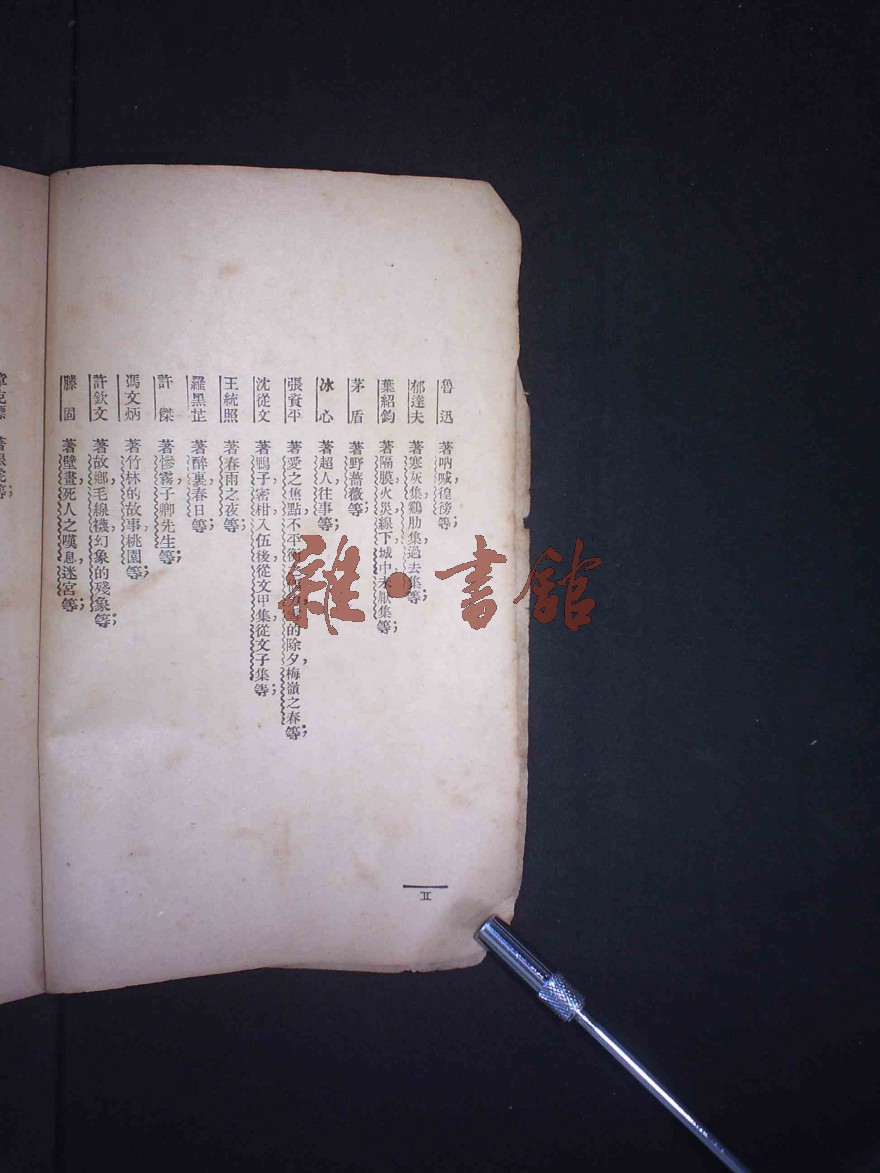 魯迅　著吶喊,徬徨等;
郁達夫　著寒灰集,鷄肋集,過去集等;
葉紹鈞　著隔膜,火災,線下,城中,未厭集等;
茅盾　著野薔薇等;
冰心　著超人,往事等;
張資平　著愛之焦點,不平衡的除夕,梅嶺之春等;
沈從文　著鴨子,密柑,入伍後,從文甲集,從文子集等;
王統照　著春雨之夜等;
羅黑芷　著醉裏,春日等;
許傑　著慘霧,子卿先生等;
馮文炳　著竹林的故事,桃園等;
許欽文　著故鄉,毛線襪,幻象的殘象等;
滕固　著壁畫,死人之嘆息,迷宮等;
II
雜·書館